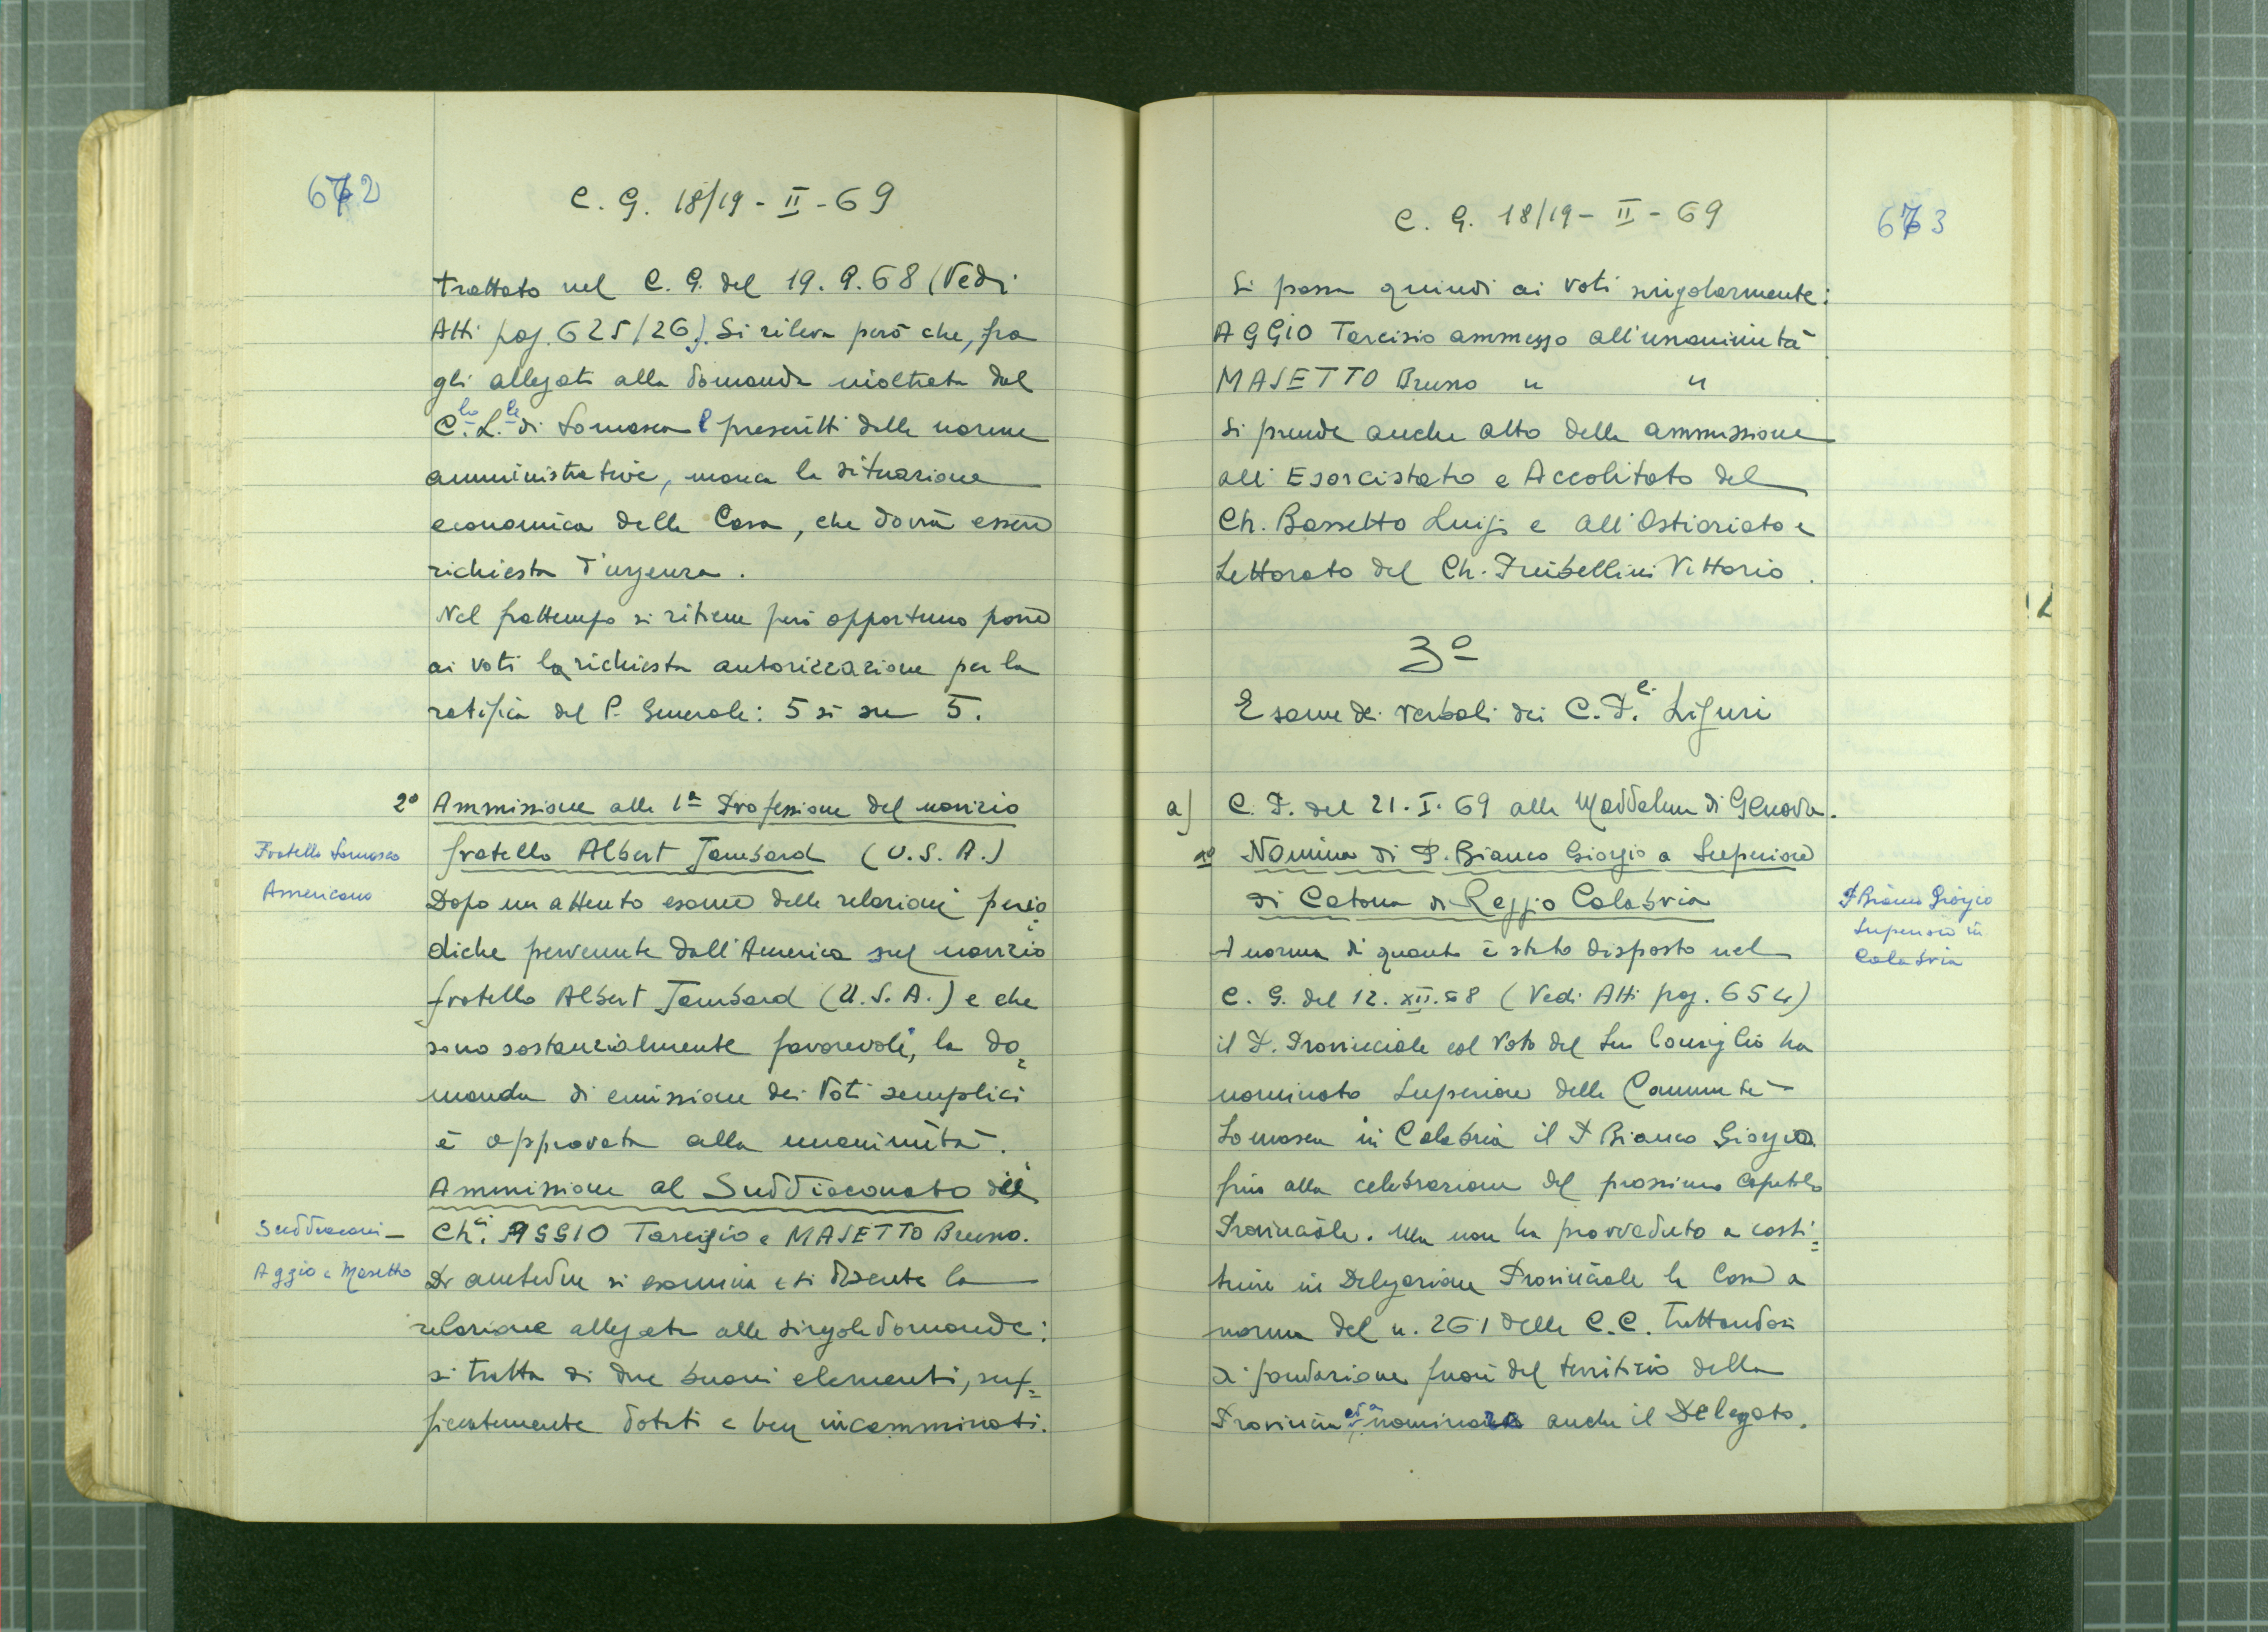 672
C. G. 18/19 - II - 69
trattato nel C. G. del 19.9.68 (Vedi
Atti pag. 625/26). Si rileva però che, fra
gli allegati alla domanda inoltrata dal
C.lo L.le di Somasca e prescritti dalle norme
amministrative, manca la situazione
economica della Casa, che dovrà essere
richiesta d'urgenza.
Nel frattempo si ritiene però opportuno porre
ai voti la richiesta autorizzazione per la
ratifica del P. Generale: 5 sì su 5.
2° Ammissione alla 1ª Professione del novizio
fratello Albert Jambard (U.S.A.)
Fratello Somasco
Americano
Dopo un attento esame delle relazioni perio=
diche pervenute dall'America sul novizio
fratello Albert Jambard (U.S.A.) e che
sono sostanzialmente favorevoli, la do=
manda di emissione dei Voti semplici
è approvata alla unanimità.
Ammissione al Suddiaconato dei
Ch.ci AGGIO Tarcisio e MASETTO Bruno.
Suddiaconi -
Aggio e Masetto
Di ambedue si esamina e si discute la
relazione allegata alle singole domande:
si tratta di due buoni elementi, suf=
ficientemente dotati e ben incamminati.
C. G. 18/19 - II - 69
673
Si passa quindi ai voti singolarmente:
AGGIO Tarcisio ammesso all'unanimità
MASETTO Bruno " "
Si prende anche atto della ammissione
all'Esorcistato e Accolitato del
Ch. Bassetto Luigi e all'Ostiariato e
Lettorato del Ch. Vittorio.
3°
Esame dei verbali dei C.P.ci Liguri
a) C. P. del 21.I.69 alla Maddalena di Genova.
1° Nomina di P. Bianco Giorgio a Superiore
di Catona di Reggio Calabria
P Bianco Giorgio
Superiore in
Calabria
A norma di quanto è stato disposto nel
C. G. del 12.XII.68 (Vedi Atti pag. 654)
il P. Provinciale col Voto del Suo Consiglio ha
nominato Superiore della Comunità
Somasca in Calabria il P Bianco Giorgio
fino alla celebrazione del prossimo Capitolo
Provinciale. Ma non ha provveduto a costi=
tuire in Delegazione Provinciale la Casa a
norma del n. 261 delle C.C. trattandosi
di fondazione fuori del territorio della
Provincia ed a nominare anche il Delegato.